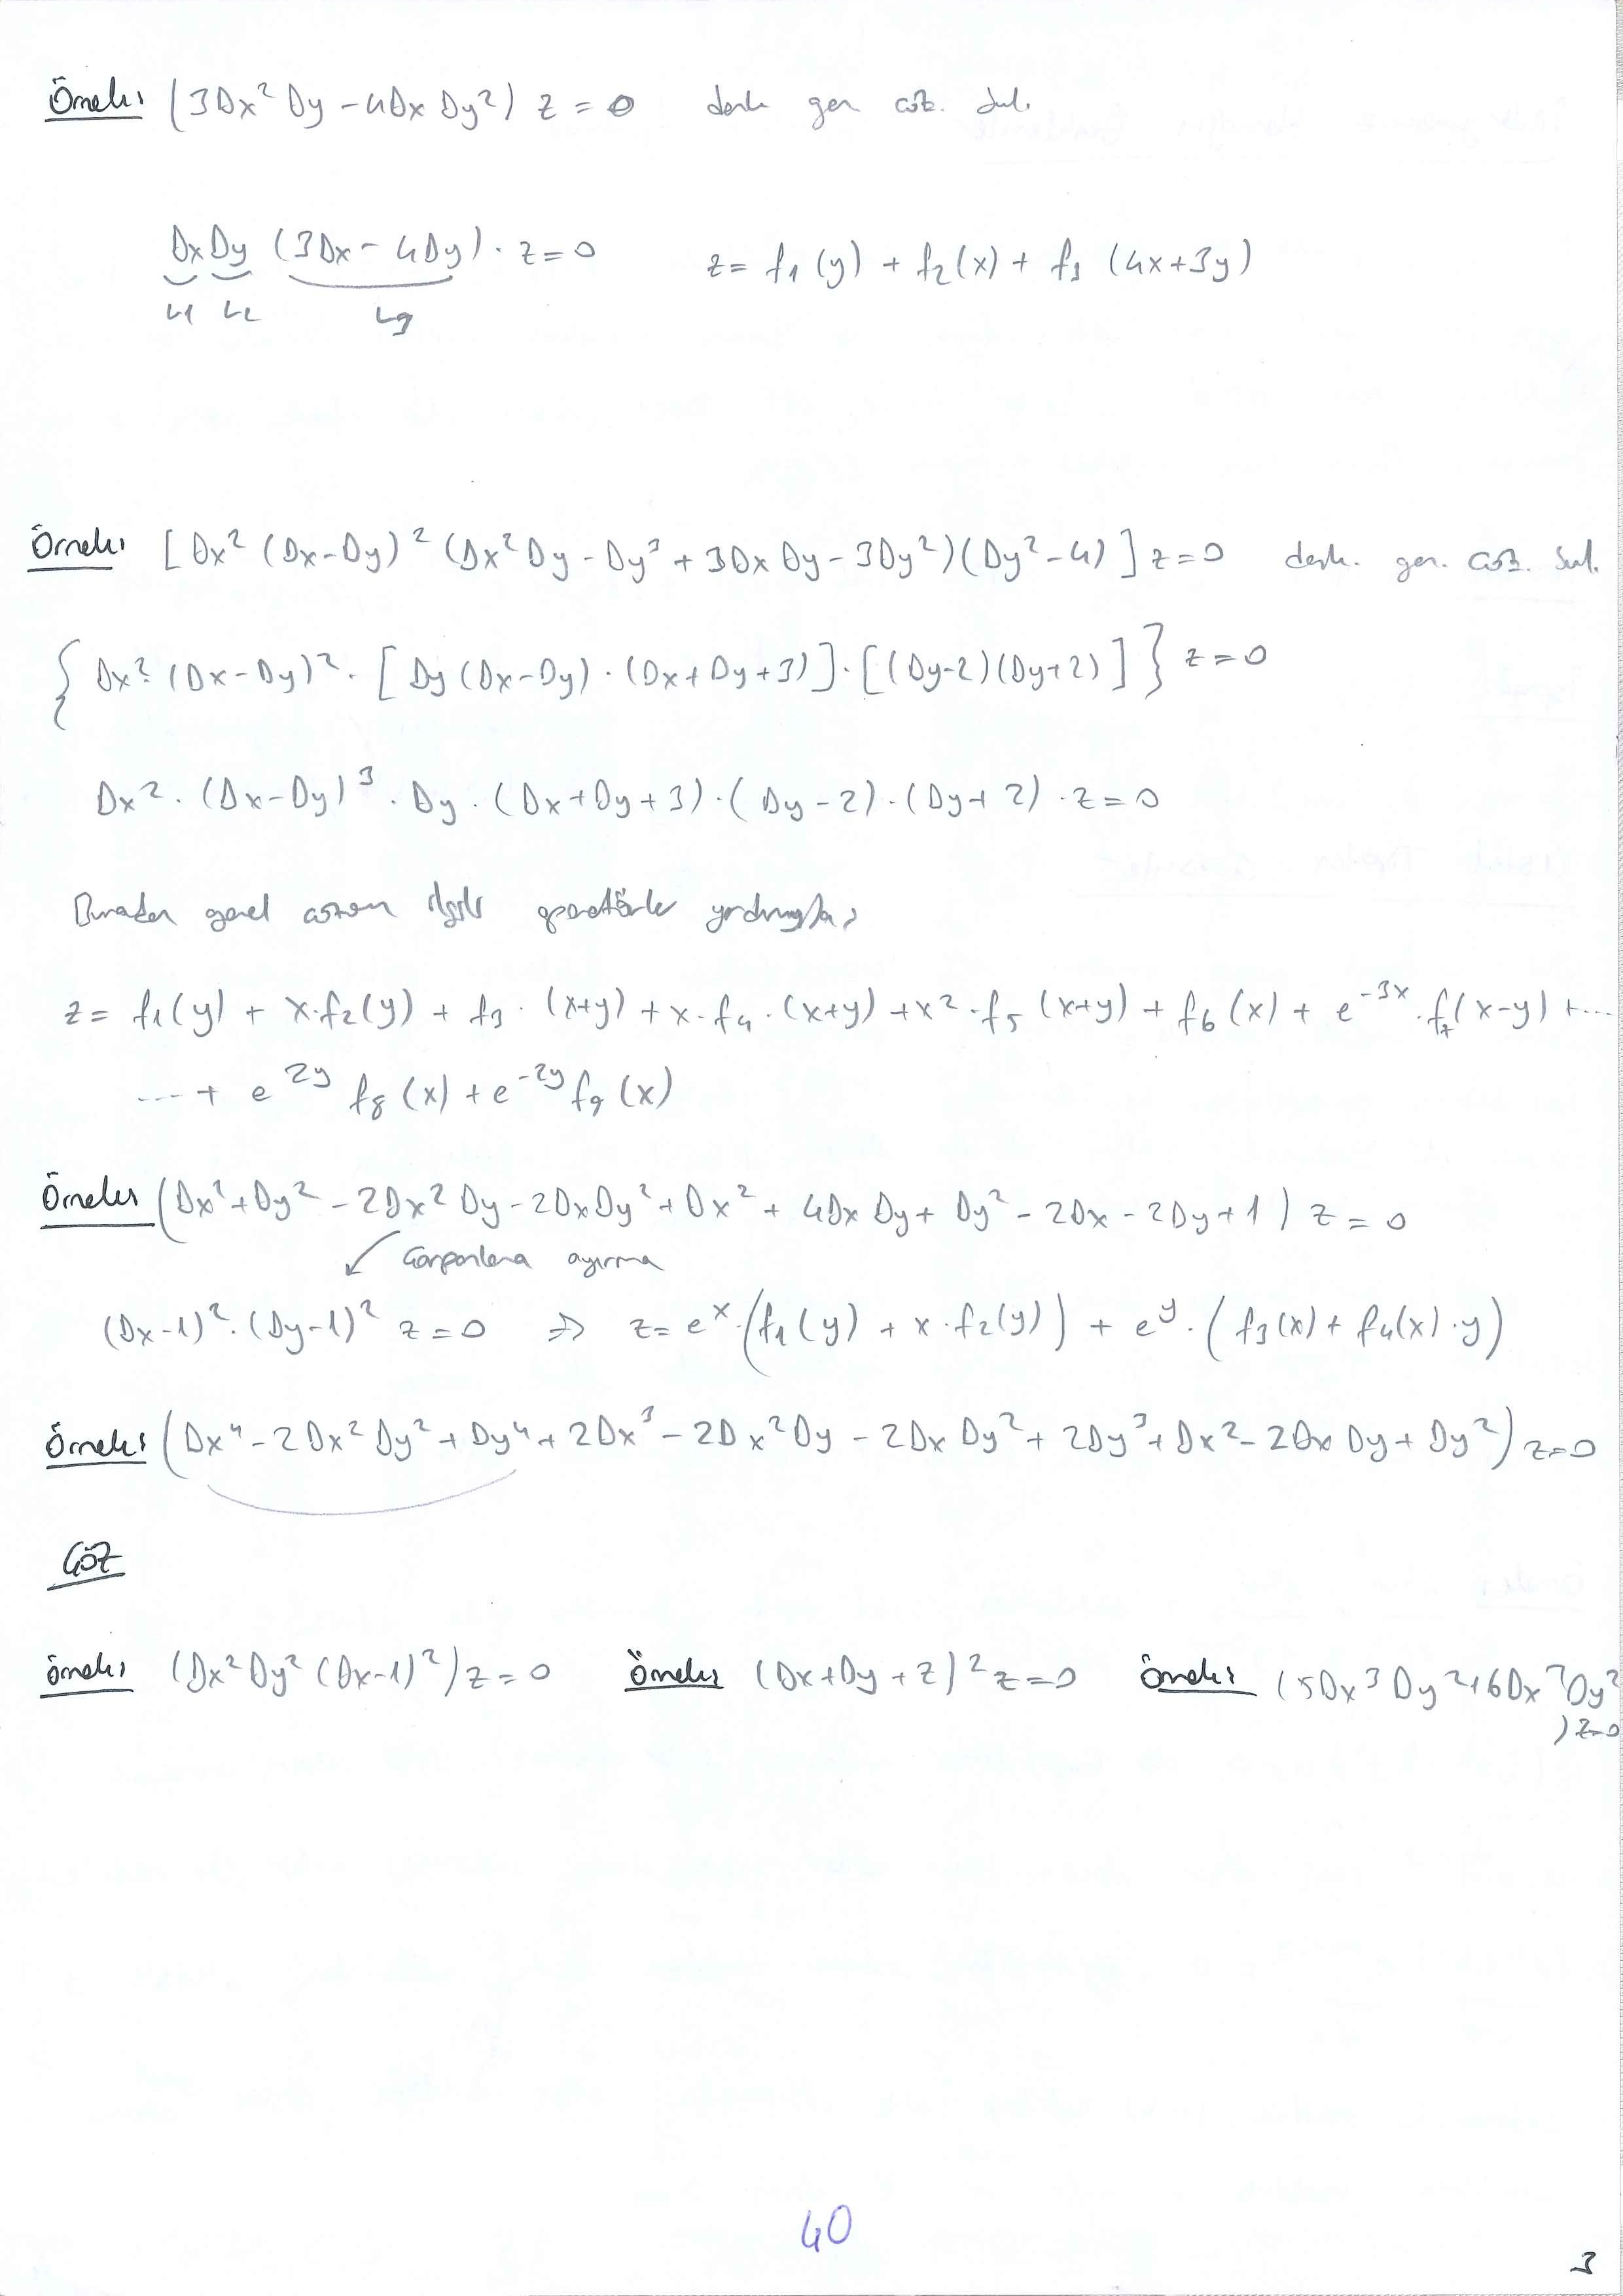 Örnek: (3Dx² Dy - 4Dx Dy²) z = 0 denk gen çöz. bul.
DxDy (3Dx - 4Dy) · z = 0 z = f₁(y) + f₂(x) + f₃ (4x+3y)
L1 L2 L3
Örnek: [Dx² (Dx-Dy)² (Dx²Dy - Dy³ + 3Dx Dy - 3Dy²)(Dy²-4)] z = 0 denk. gen. çöz. bul.
{Dx² (Dx-Dy)² · [Dy (Dx-Dy) · (Dx+Dy+3)] · [(Dy-2)(Dy+2)]} z = 0
Dx² · (Dx-Dy)³ · Dy · (Dx+Dy+3) · (Dy-2) · (Dy+2) · z = 0
Buradan genel çözüm ilgili operatörler yardımıyla;
z = f₁(y) + x·f₂(y) + f₃ · (x+y) + x·f₄ · (x+y) + x² · f₅ (x+y) + f₆ (x) + e⁻³ˣ · f₇(x-y) + ...
... + e²ʸ f₈ (x) + e⁻²ʸ f₉ (x)
Örnek: (Dx² + Dy² - 2Dx² Dy - 2DxDy² + Dx² + 4Dx Dy + Dy² - 2Dx - 2Dy + 1) z = 0
Çarpanlara ayırma
(Dx-1)² · (Dy-1)² z = 0 ⇒ z = eˣ · (f₁(y) + x · f₂(y)) + eʸ · (f₃(x) + f₄(x) · y)
Örnek: (Dx⁴ - 2Dx² Dy² + Dy⁴ + 2Dx³ - 2Dx²Dy - 2Dx Dy² + 2Dy³ + Dx² - 2Dx Dy + Dy²) z = 0
ÇÖZ
Örnek: (Dx² Dy² (Dx-1)²) z = 0 Örnek: (Dx + Dy + 2)² z = 0 Örnek: (5Dx³ Dy² + 6Dx² Dy²
) z = 0
40
3